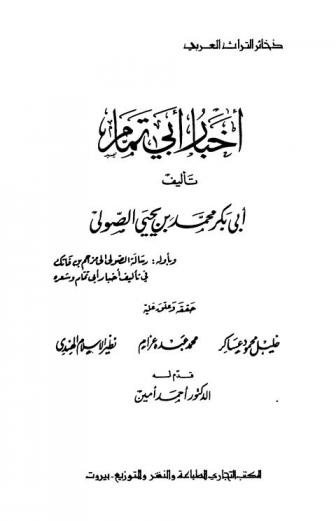 ذخائر التراث العربي
أخبار أبي تمام
تأليف
أبي بكر محمد بن يحيى الصولي
وبأوله: رسالة الصولي إلى مزاحم بن فاتك
في تأليف أخبار أبي تمام وشعره
حققه وعلق عليه
خليل محمود عساكر محمد عبده عزام نظير الإسلام الهندي
قدم له
الدكتور أحمد أمين
المكتب التجاري للطباعة والنشر والتوزيع - بيروت